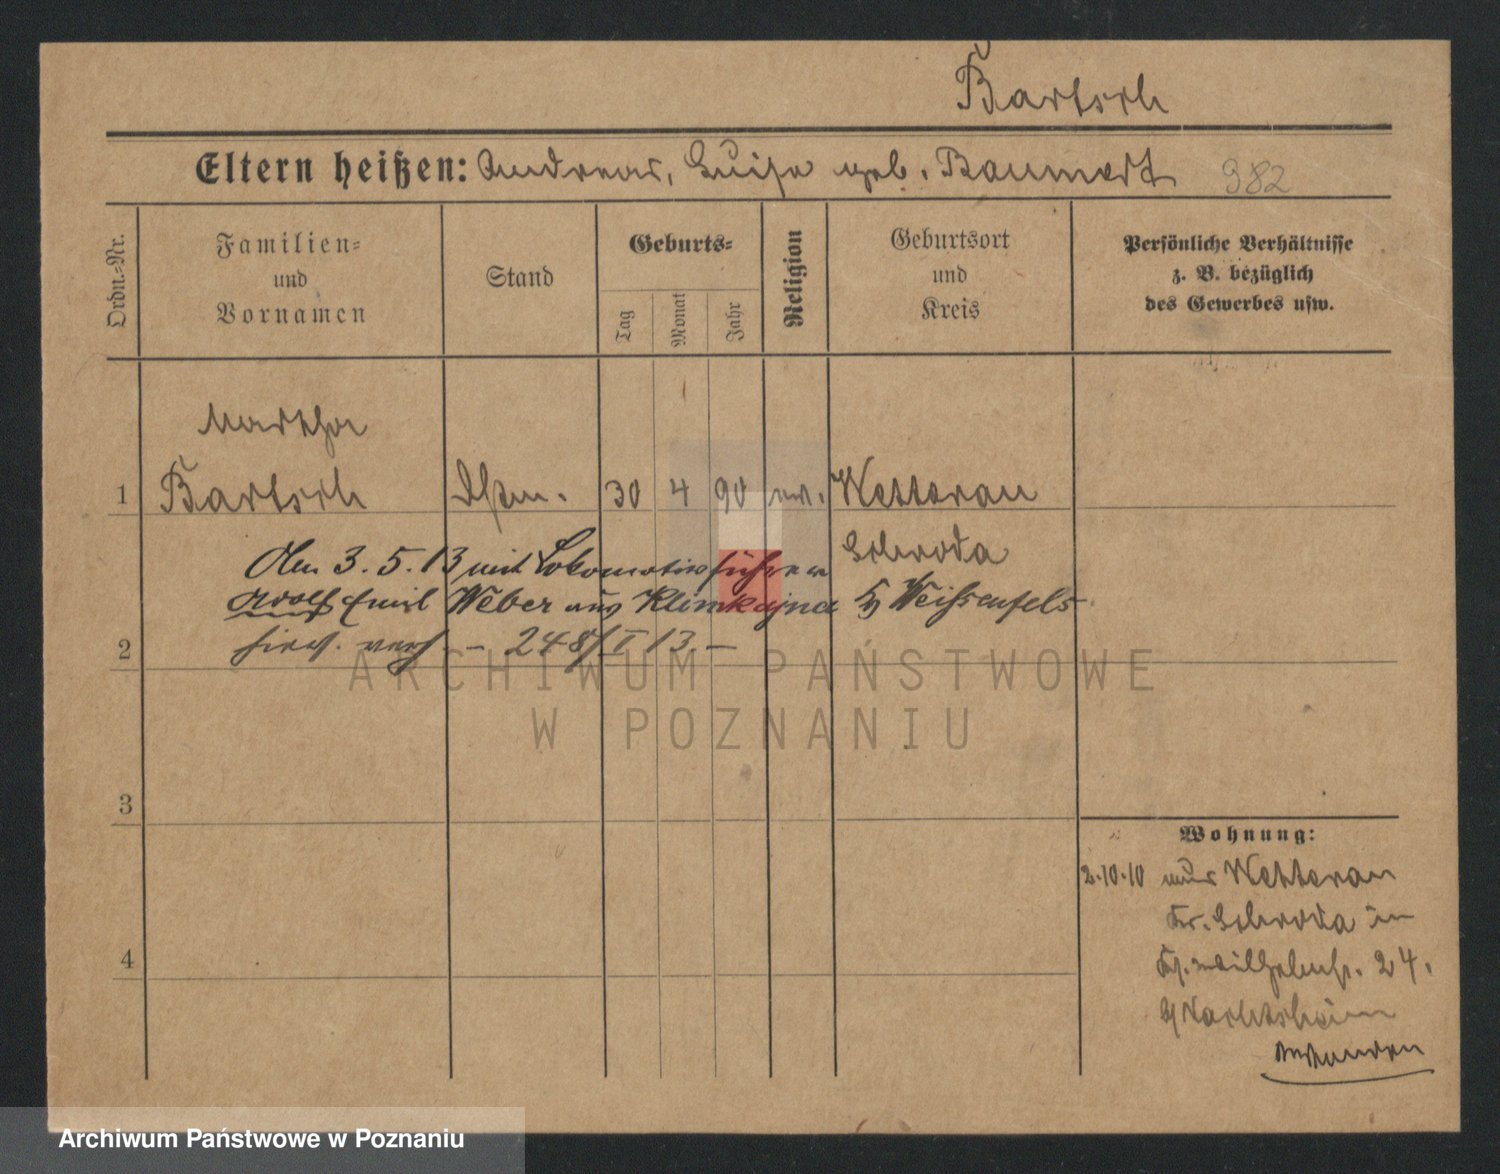 Bartsch
Eltern heißen: Andreas, Luise geb. Baumert 382
Ordn.-Nr.
Familien-
und
Vornamen
Stand
Geburts-
Tag
Monat
Jahr
Religion
Geburtsort
und
Kreis
Persönliche Verhältnisse
z. B. bezüglich
des Gewerbes usw.
Martha
1 Bartsch 30 4 90 ev. Wetterau
Schroda
Am 3.5.13 mit Lokomotivführer
Adolf Emil Weber aus Weissenfels
2 hier verh. - 248/I 13. -
3
4
Wohnung:
2.10.10 aus Wetterau
Kr. Schroda in
Wilhelmstr. 24.
ARCHIWUM PAŃSTWOWE
W POZNANIU
Archiwum Państwowe w Poznaniu